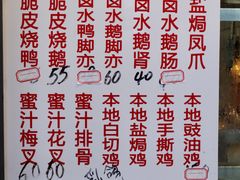 脆皮烧鸭
脆皮烧鹅
55
卤水鸭脚亦
卤水鹅脚亦
60
卤水鹅肾
40
卤水鹅肠
盐焗凤爪
蜜汁梅叉
60
蜜汁花叉
60
蜜汁排骨
本地白切鸡
本地盐焗鸡
本地手撕鸡
本地豉油鸡